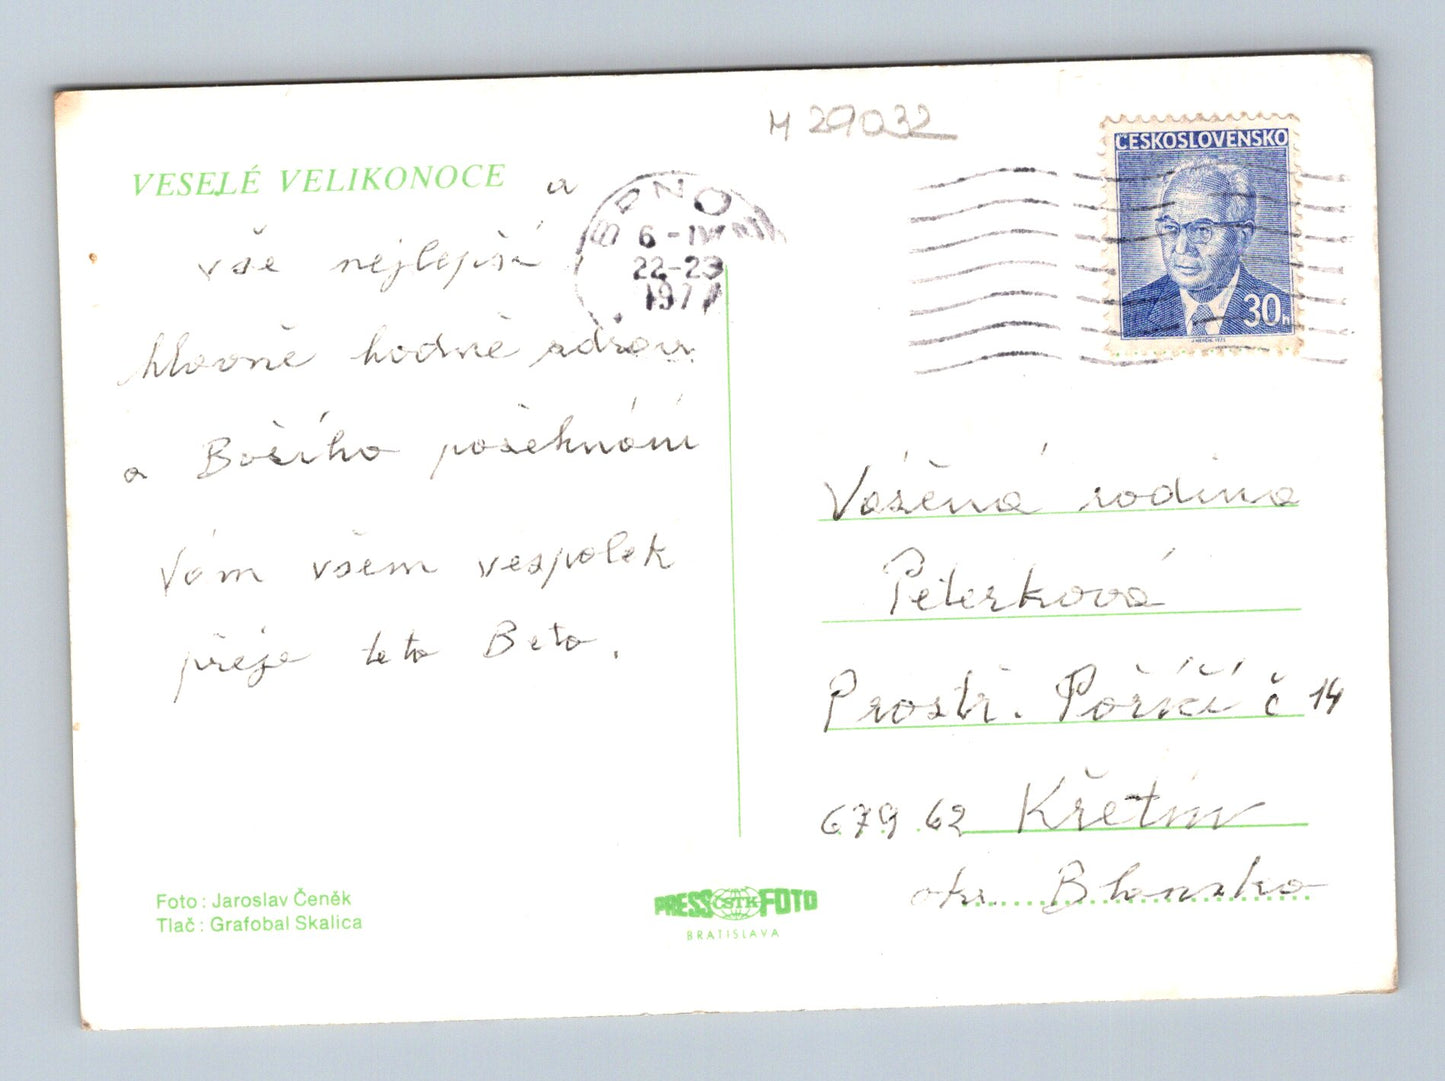 M 29032
ČESKOSLOVENSKO
30h
BRNO
6-IV
22-23
1977
VESELÉ VELIKONOCE a
vše nejlepší
hlavně hodně zdraví
a Božího požehnání
Vám všem vespolek
přeje teta Beta.
Vážená rodina
Peterková
Prostř. Poříčí č 14
679 62 Křetín
okr. Blansko
Foto : Jaroslav Čeněk
Tlač : Grafobal Skalica
PRESS ČSTK FOTO
BRATISLAVA